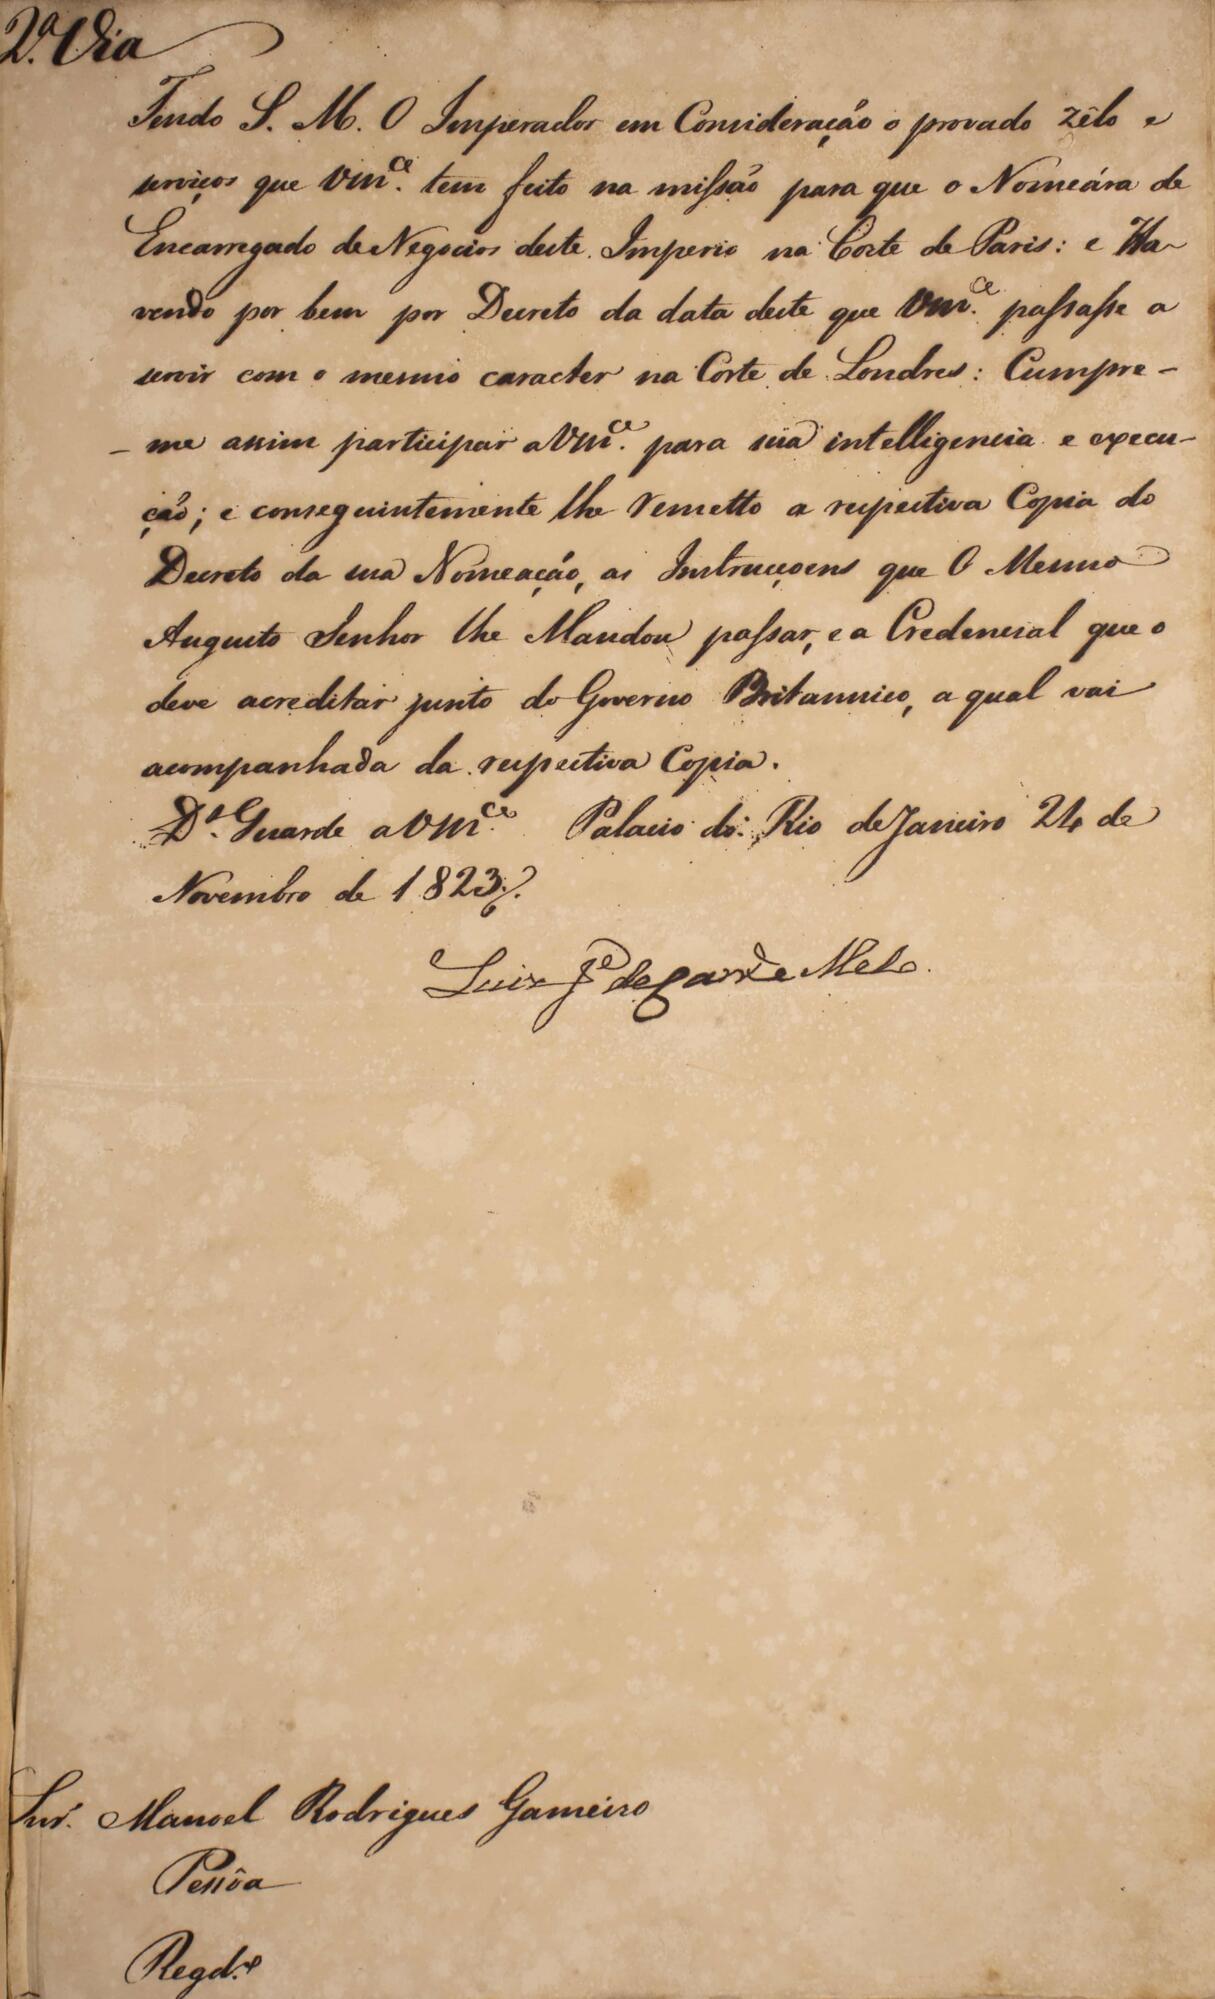 2.ª Via
Tendo S. M. O Imperador em Consideração o provado zêlo e
serviços que Vm.ce tem feito na missão para que o Nomeára de
Encarregado de Negocios deste Imperio na Corte de Paris: e Ha-
vendo por bem por Decreto da data deste que Vm.ce passasse a
servir com o mesmo caracter na Corte de Londres: Cumpre-
-me assim participar a Vm.ce para sua intelligencia e execu-
ção; e conseguintemente lhe remetto a respectiva Copia do
Decreto da sua Nomeação, as Instrucçoens que O Mesmo
Augusto Senhor lhe Mandou passar, e a Credencial que o
deve acreditar junto do Governo Britannico, a qual vai
acompanhada da respectiva Copia.
D.s Guarde a Vm.ce Palacio do Rio de Janeiro 24 de
Novembro de 1823.
Luiz J.e de Carv.º e Mello.
Snr. Manoel Rodrigues Gameiro
Pessôa
Regd.º